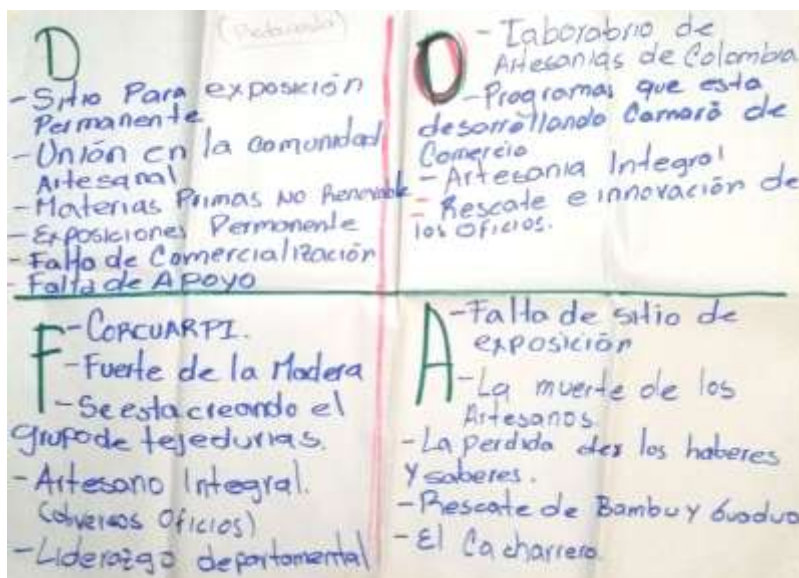 D
- Sitio Para exposición
Permanente
- Unión en la comunidad
Artesanal
- Materias Primas No Renovable
- Exposiciones Permanente
- Falta de Comercialización
- Falta de Apoyo
O
- Laboratorio de
Artesanias de Colombia
- Programas que esta
desarrollando Camara de
Comercio
- Artesania Integral
- Rescate e innovación de
los Oficios.
F
- CORCUARPI.
- Fuerte de la Madera
- Se esta creando el
grupo de tejedurias.
- Artesano Integral.
(diversos Oficios)
- Liderazgo departamental
A
- Falta de sitio de
exposición
- La muerte de los
Artesanos.
- La perdida de los haberes
y saberes.
- Rescate de Bambu y Guadua
- El Cacharrero.